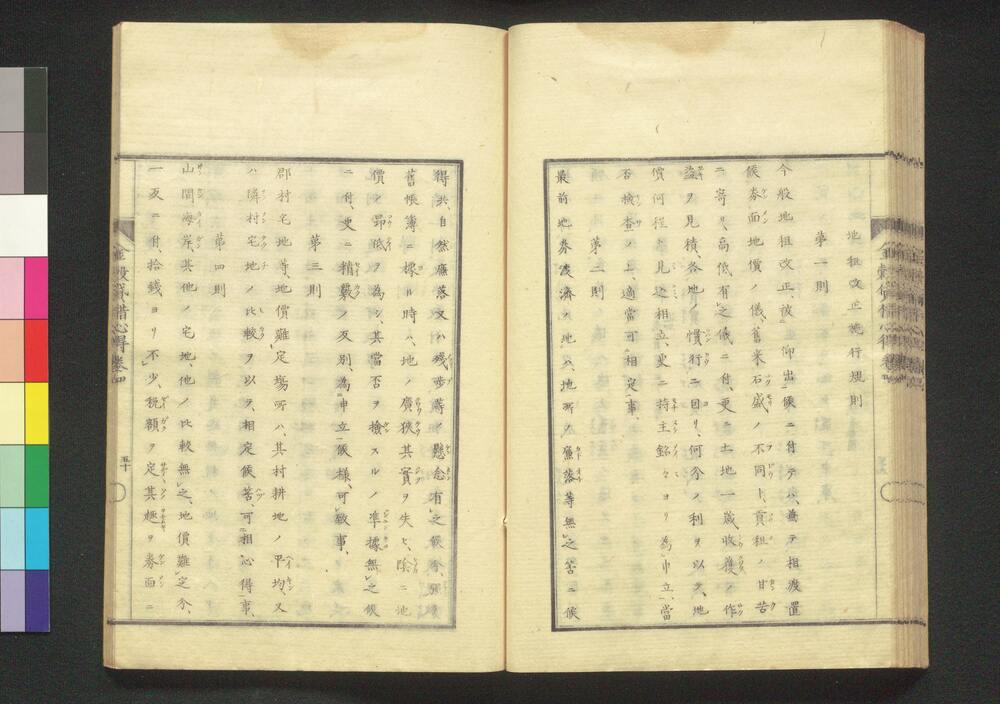 地租改正施行規則
第一則
今般地租改正、被仰出候ニ付テハ、兼テ相渡置
候券面地價ノ儀、舊来石盛ノ不同ト、貢租ノ甘苦
ニ寄リ、高低有之儀ニ付、更ニ土地一歳收獲ノ作
益ヲ見積、各地ノ慣行ニ因リ、何分ノ利ヲ以テ、地
價何程ト見込相立、更ニ持主銘々ヨリ為申立、當
否檢査ノ上、適當可相定事、
第二則
最前地券渡濟ノ地ハ、地所ノ廉落等無之筈ニ候
得共、自然廉落又ハ残歩等ノ懸念有之候分、
舊帳簿ニ據ル時ハ、地ノ廣狭其實ヲ失ヒ、隨ニ地
價ノ昂低ヲ為シ、其當否ヲ檢スルノ準據無之候
ニ付、更ニ精覈ノ反別、為申立候様、可致事、
第三則
郡村宅地等、地價難定場所ハ、其村耕地ノ平均、又
ハ隣村宅地ノ比較ヲ以テ、相定候筈、可相心得事、
第四則
山間海岸、其他ノ宅地、他ノ比較無之、地價難定分、
一反ニ付、拾錢ヨリ不少、税額ヲ定、其趣ヲ券面ニ
五十